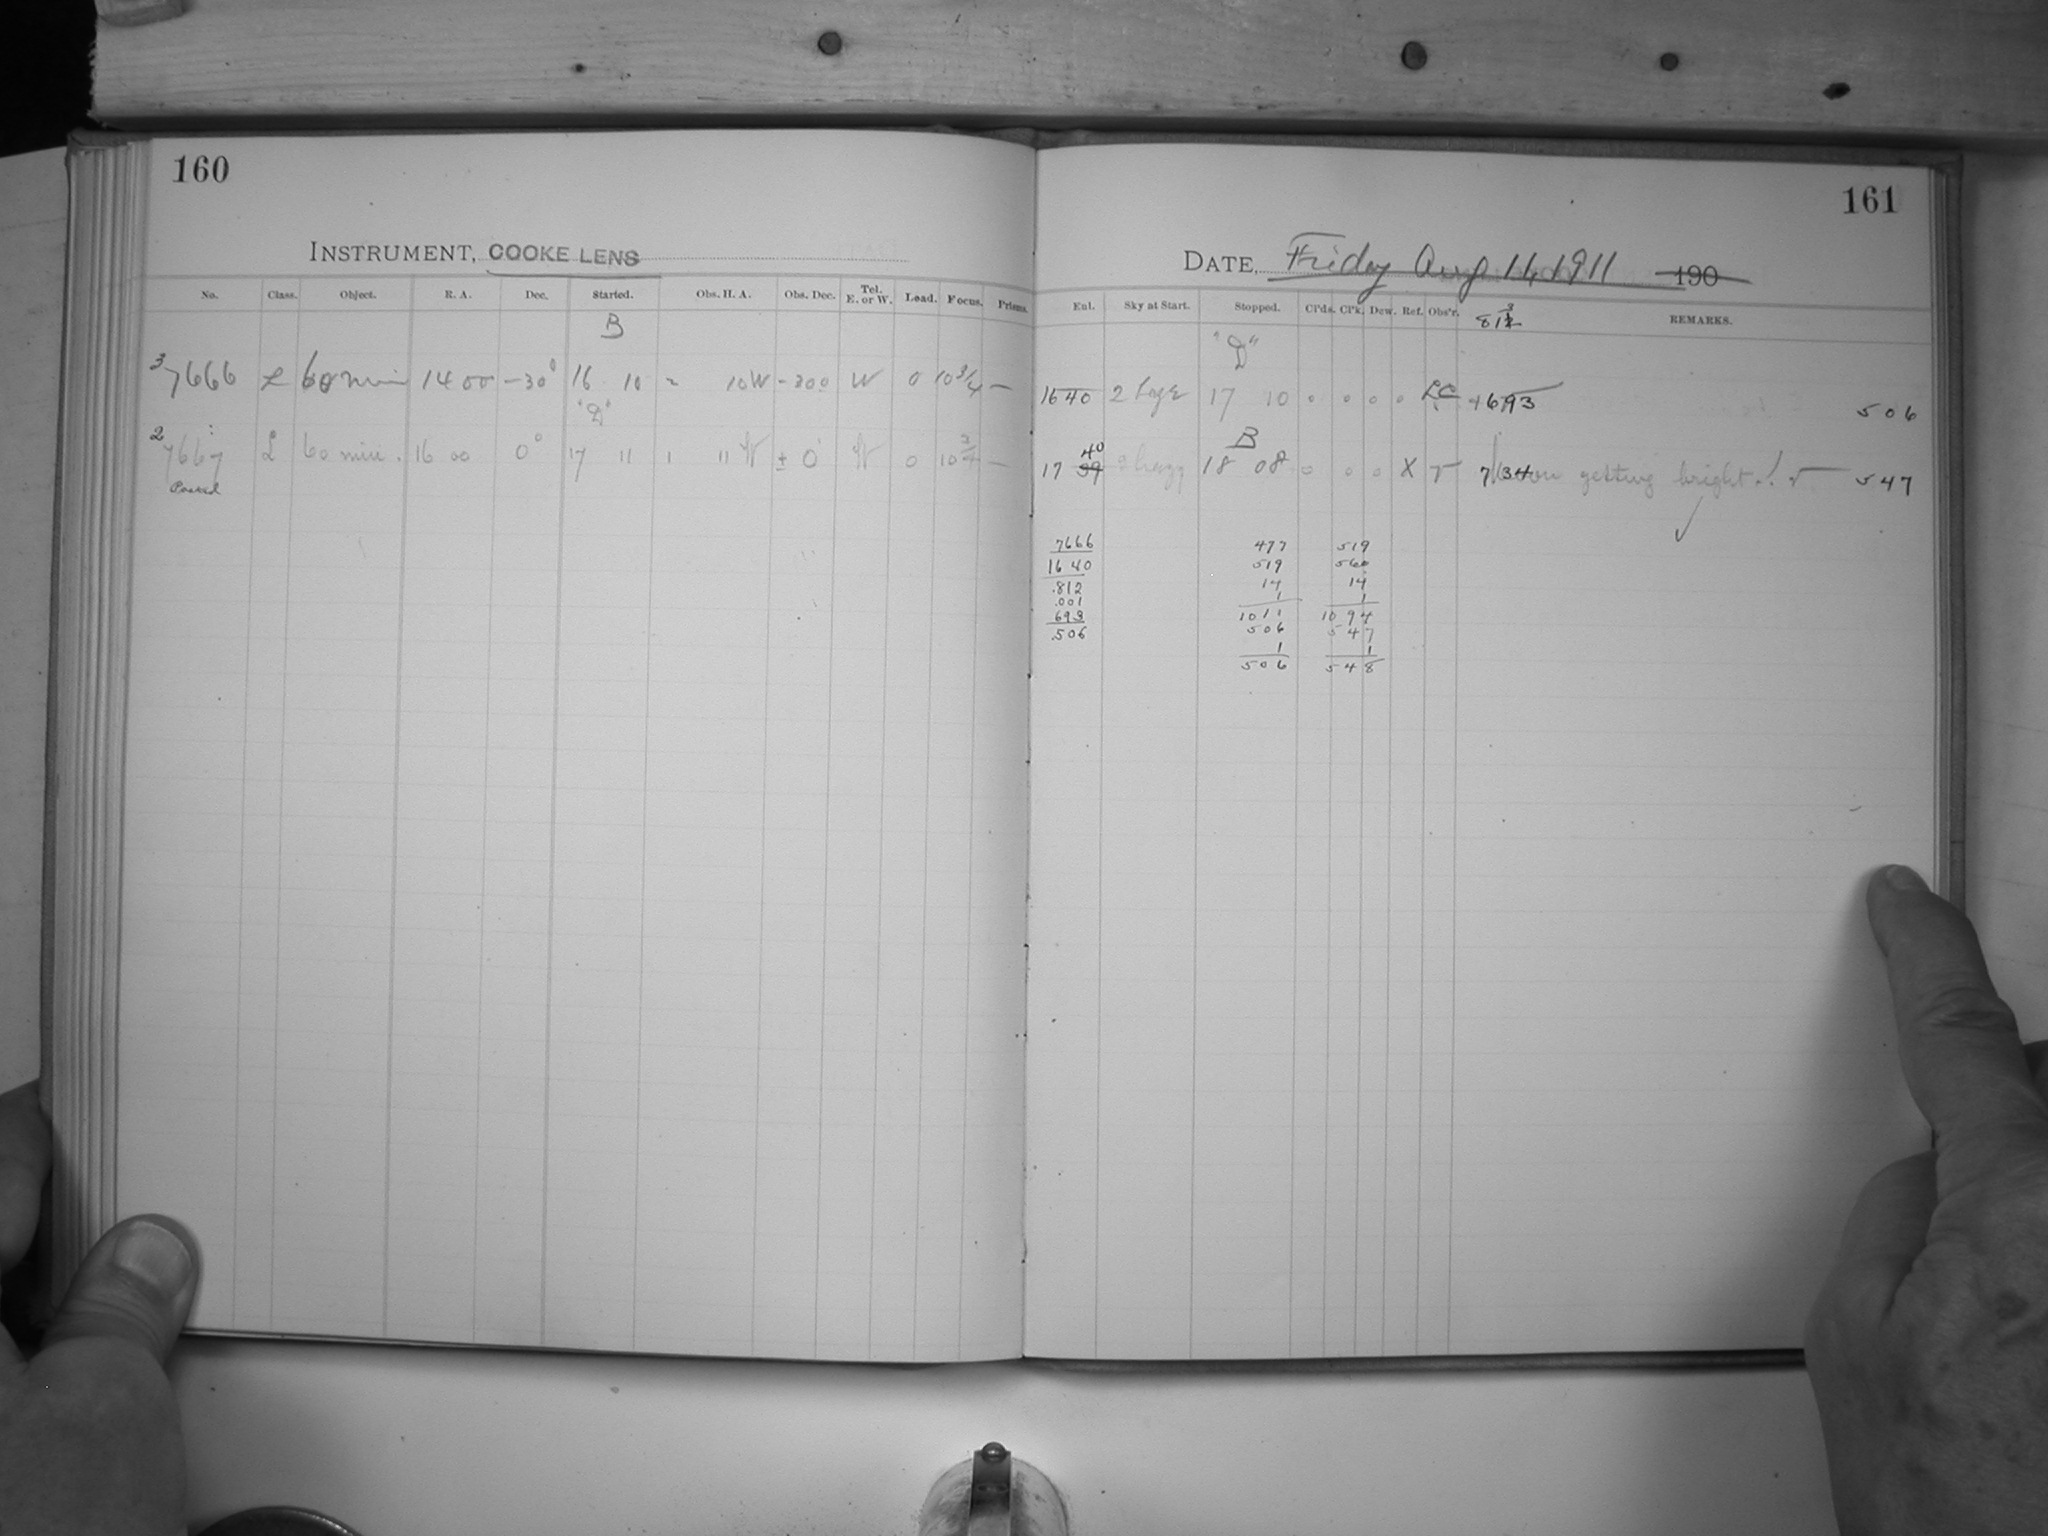 160
INSTRUMENT, COOKE LENS
No. Class. Object. R. A. Dec. Started. Obs. H. A. Obs. Dec. Tel. E. or W. Load. Focus. Prisms.
B
3 7666 L 60 min 14 00 -30° 16 10 2 10 W -30 0 W 0 10 3/4 —
"D"
2 7667 L 60 min. 16 00 0° 17 11 1 11 W ± 0 W 0 10 3/4 —
161
DATE, Friday Aug 1911 190
Ent. Sky at Start. Stopped. Cl'ds. Cl'k. Dew. Ref. Obs'r. REMARKS.
"D"
16 40 2 17 10 0 0 0 0 LC 693 506
B
40
17 39 hazy 18 08 0 0 0 X 734 Moon getting bright.! 547
7666 477 519
16 40 519 560
.812 14 14
.001 1 1
693 1011 1094
.506 506 547
1 1
506 548